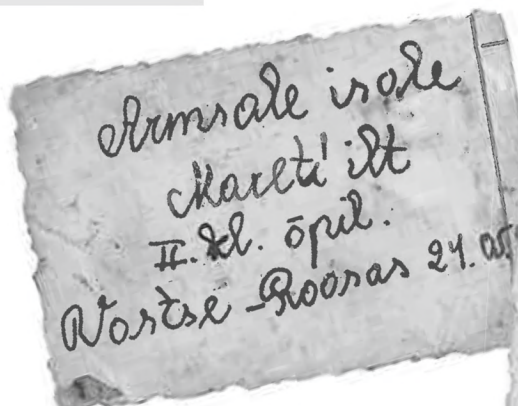 Armsale isale
Mareti' ilt
II. kl. õpil.
Vastse-Roosas 24.